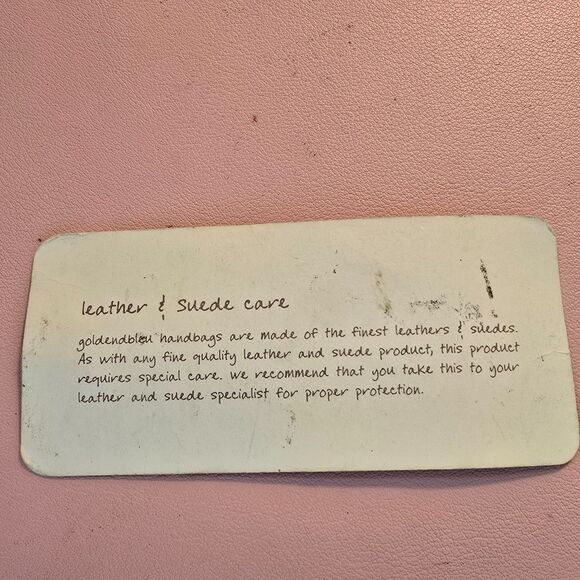 leather & suede care
goldendbleu handbags are made of the finest leathers & suedes.
As with any fine quality leather and suede product, this product
requires special care. We recommend that you take this to your
leather and suede specialist for proper protection.